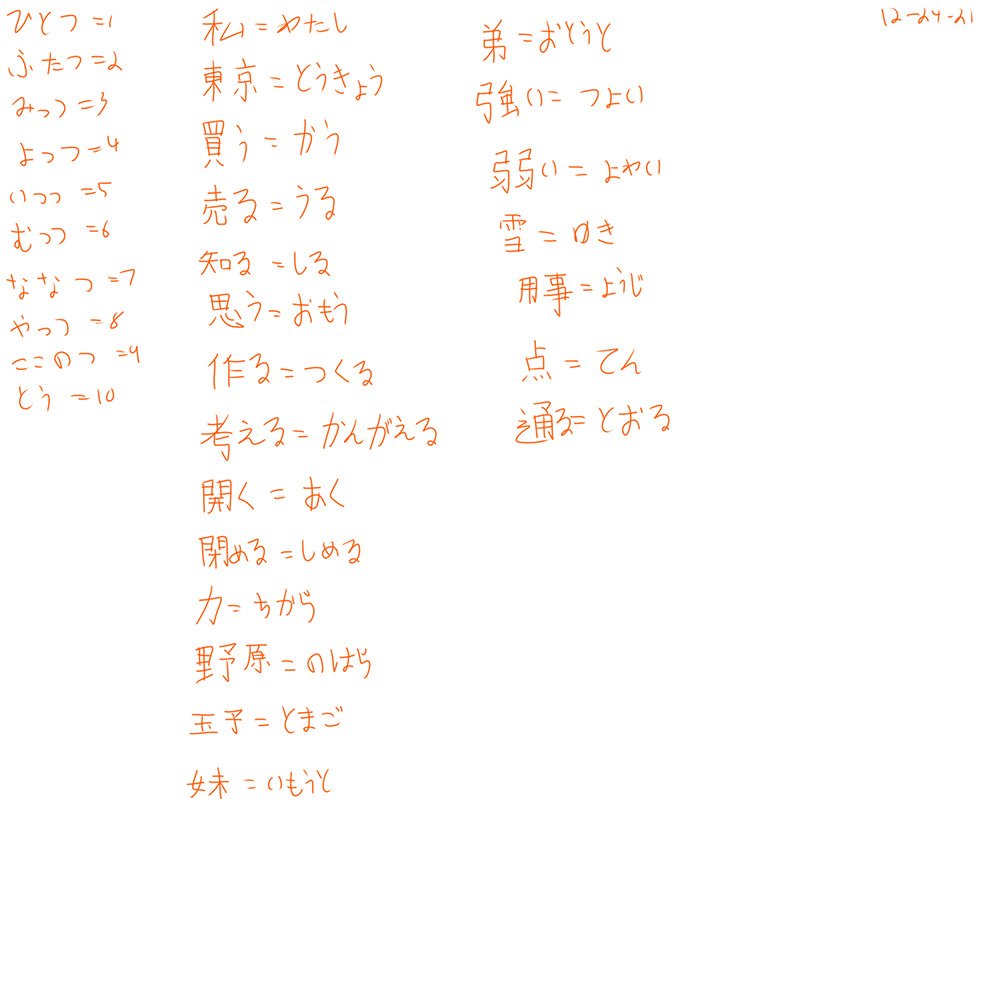 ひとつ=1
ふたつ=2
みっつ=3
よっつ=4
いつつ=5
むっつ=6
ななつ=7
やっつ=8
ここのつ=9
とう=10
私=わたし
東京=とうきょう
買う=かう
売る=うる
知る=しる
思う=おもう
作る=つくる
考える=かんがえる
開く=あく
閉める=しめる
力=ちから
野原=のはら
玉子=とまご
妹=いもうと
弟=おとうと
強い=つよい
弱い=よわい
雪=ゆき
用事=ようじ
点=てん
通る=とおる
12-24-21